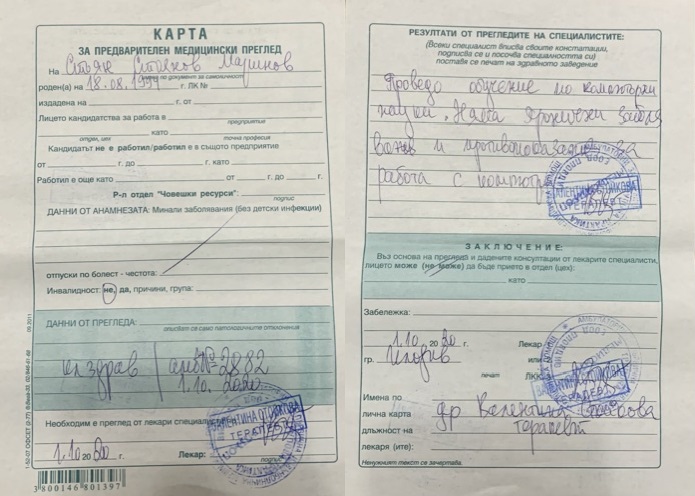 КАРТА
ЗА ПРЕДВАРИТЕЛЕН МЕДИЦИНСКИ ПРЕГЛЕД
На Стоян Стоянов Маринов
роден(а) на 18.08.1997 г. ЛК №
издадена на г. от
Лицето кандидатства за работа в
предприятие
като
отдел, цех точна професия
Кандидатът не е работил/работил е в същото предприятие
от г. до г. като
Работил е още като от г. до г.
Р-л отдел "Човешки ресурси":
подпис
ДАННИ ОТ АНАМНЕЗАТА: Минали заболявания (без детски инфекции)
отпуски по болест - честота:
Инвалидност: не, да, причини, група:
ДАННИ ОТ ПРЕГЛЕДА:
описват се само патологичните отклонения
кл здрав амб № 2882
1.10.2020
Необходим е преглед от лекари специалисти
ВАЛЕНТИНА СТОЙКОВА
ТЕРАПЕВТ
1.10.2020 Лекар:
3800146801397
РЕЗУЛТАТИ ОТ ПРЕГЛЕДИТЕ НА СПЕЦИАЛИСТИТЕ:
(Всеки специалист вписва своите констатации,
подписва се и посочва специалността си)
поставя се печат на здравното заведение
Проведе обучение по компютърни
науки. Няма хронични забол
вания и противопоказания за
работа с компютри
ВАЛЕНТИНА СТОЙКОВА
ТЕРАПЕВТ
ЗАКЛЮЧЕНИЕ:
Въз основа на прегледа и дадените консултации от лекарите специалисти,
лицето може (не може) да бъде прието в отдел (цех):
като
Забележка:
1.10.2020 Лекар
гр. или
печат ЛКК
ВАЛЕНТИНА СТОЙКОВА
ТЕРАПЕВТ
Имена по
лична карта др Валентина Стойкова
длъжност на терапевт
лекаря (ите):
Ненужният текст се зачертава.